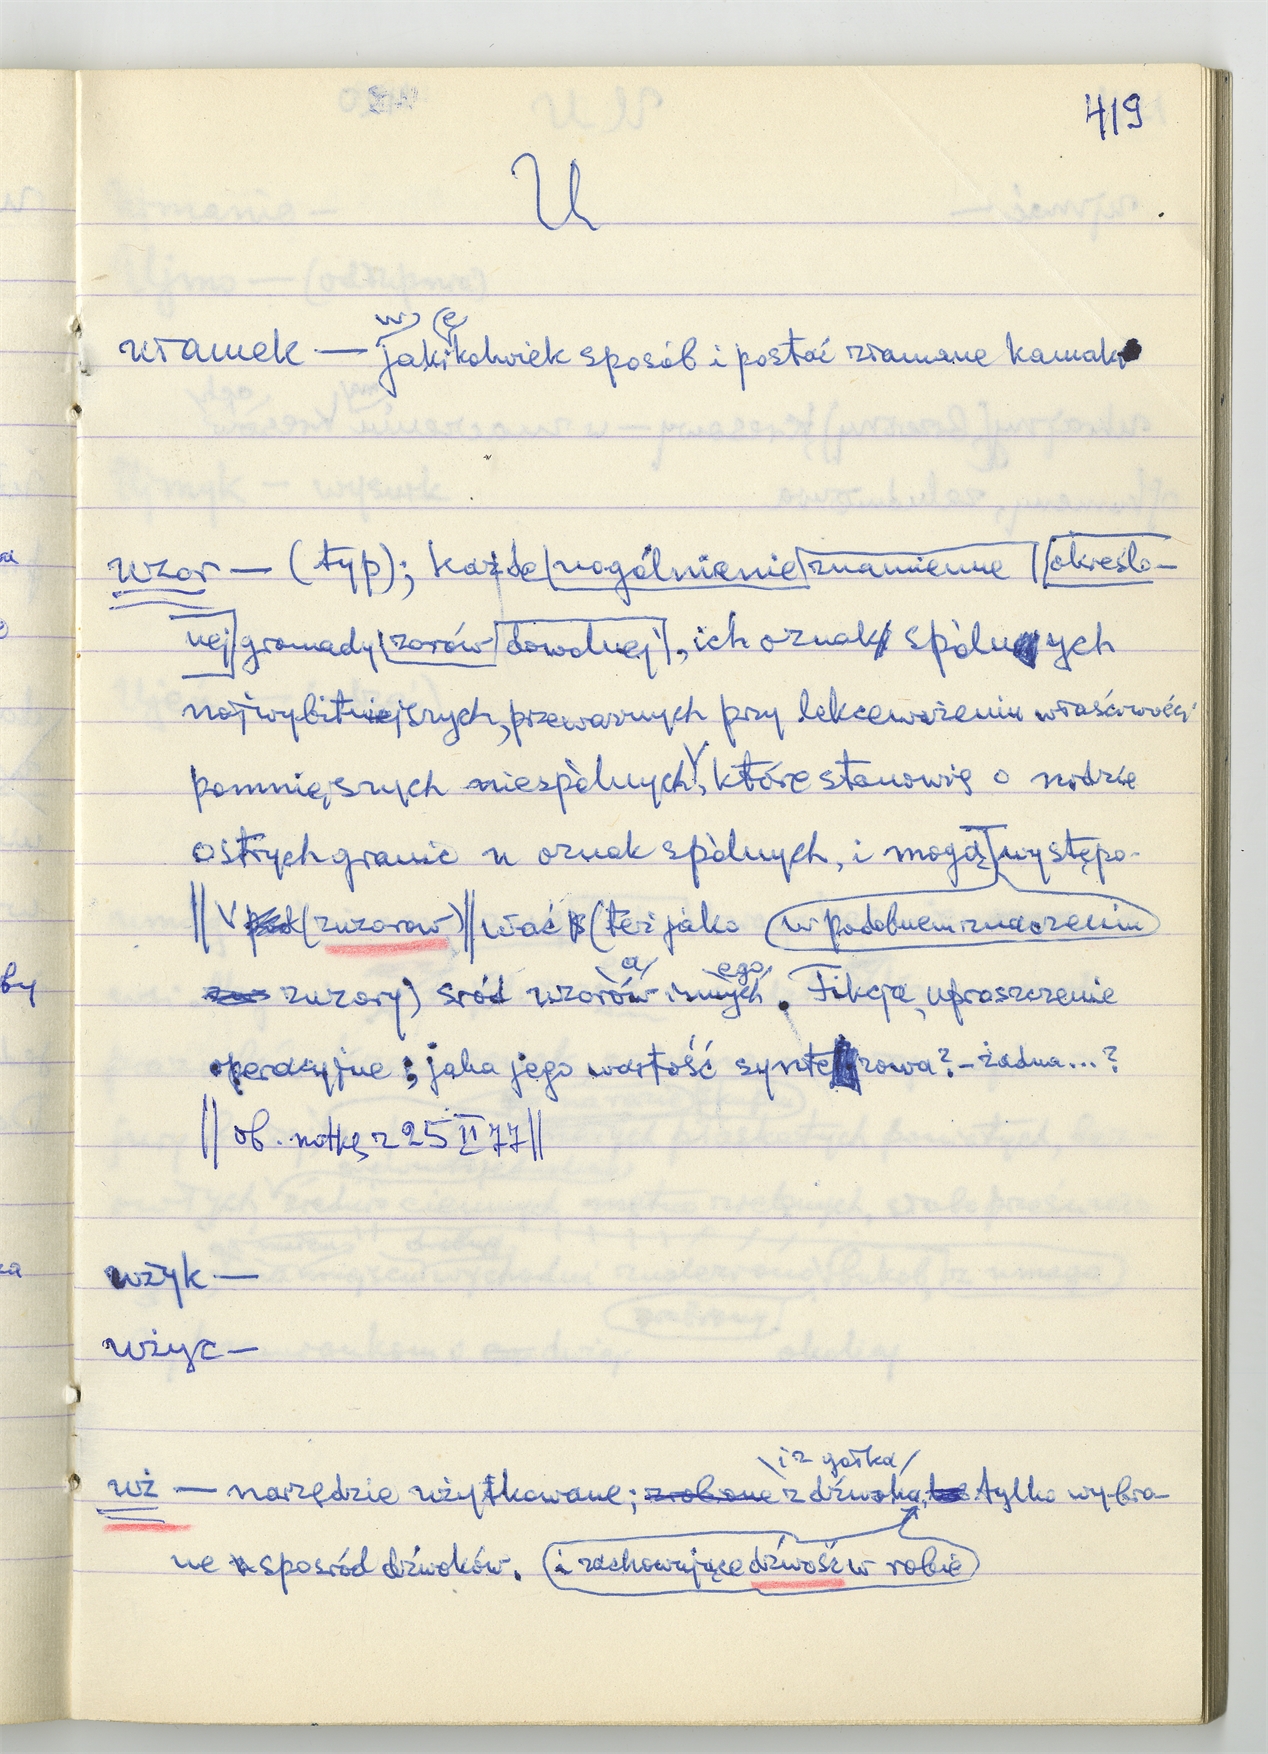 419
U
w ę
ułamek — jakikolwiek sposób i postać złamane kamak
uzor — (typ); każde uogólnienie znamienne określo-
nej gromady zorów dowolnej, ich oznak spòlnych
najwybitniejszych, przeważnych przy lekceważeniu właściwości
pomniejszych niespòlnych, które stanowią o
ostrych granic u oznak spòlnych, i mogą występo-
V (zuzorow) wać (też jako w podobnem znaczeniu
a ego
zuzory) sród uzorów innych. Fikcja, uproszczenie
operacyjne; jaka jego wartość zowa? – żadna...?
ob. notkę z 25 II 77
użyk —
użyc —
i z gołka
uż — narzędzie użytkowane; zrobione z dźwoka, tylko wybra-
ne sposród dźwoków. i zachowujące dźwość w robie
by